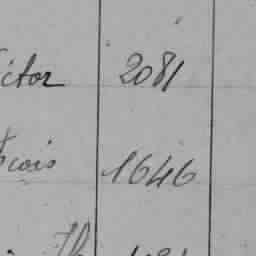 ictor 2081
çois 1646